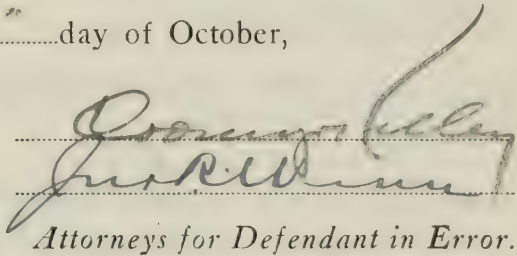 day of October,
Jno. R. Winn
Attorneys for Defendant in Error.